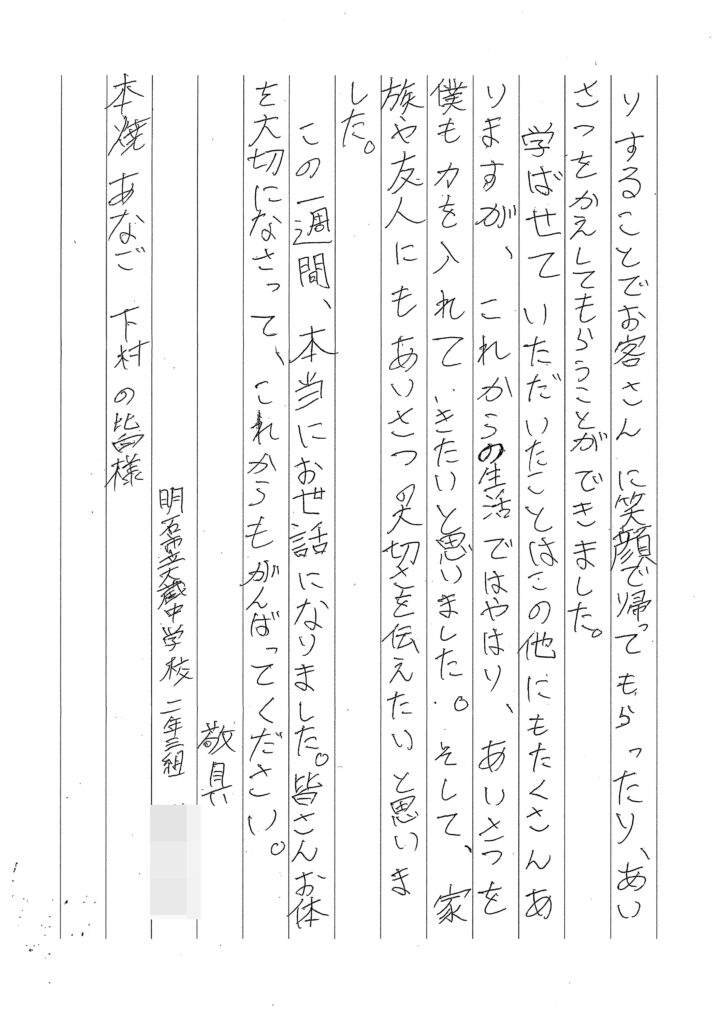 りすることでお客さんに笑顔で帰ってもらったり、あい
さつをかえしてもらうことができました。
学ばせていただいたことはこの他にもたくさんあ
りますが、これからの生活ではやはり、あいさつを
僕も力を入れていきたいと思いました。そして、家
族や友人にもあいさつの大切さを伝えたいと思いま
した。
この一週間、本当にお世話になりました。皆さんお体
を大切になさって、これからもがんばってください。
敬具
明石市立大蔵中学校 二年三組
本焼あなご 下村の皆様